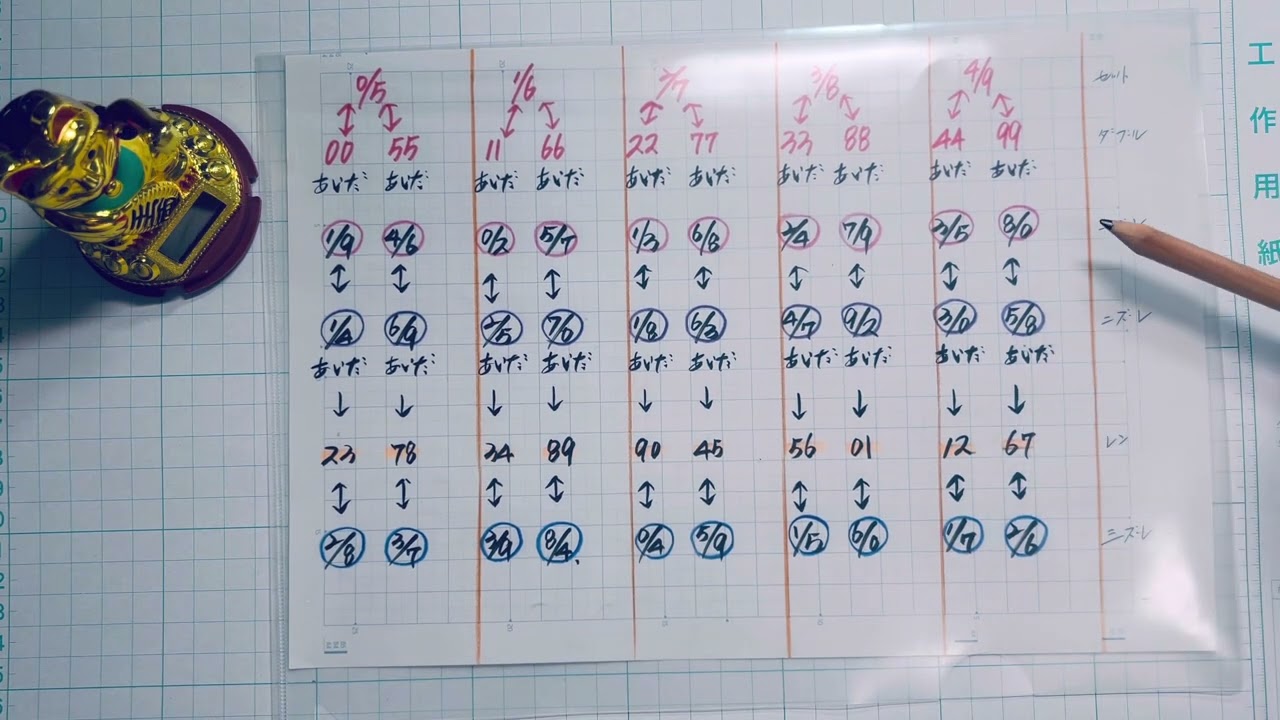 0/5 1/6 2/7 3/8 4/9 セット
00 55 11 66 22 77 33 88 44 99 ダブル
あいだ あいだ あいだ あいだ あいだ あいだ あいだ あいだ あいだ あいだ
1/9 4/6 0/2 5/7 1/3 6/8 2/4 7/9 3/5 8/0
1/4 6/9 2/5 7/0 1/8 6/3 4/7 9/2 3/0 5/8 ニズレ
あいだ あいだ あいだ あいだ あいだ あいだ あいだ あいだ あいだ あいだ
23 78 34 89 90 45 56 01 12 67 レン
2/8 3/7 3/9 8/4 0/4 5/9 1/5 6/0 1/7 2/6 三ズレ
工作用紙